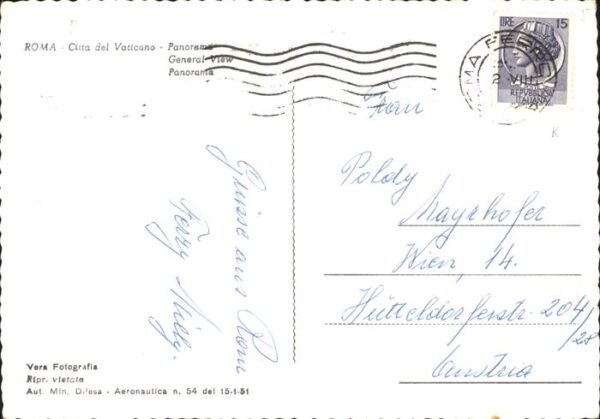 ROMA - Citta del Vaticano - Panorama
General View
Panorama
LIRE 15
REPUBBLICA
ITALIANA
ROMA FERR
2 VIII
Frau
Poldy
Mayrhofer
Wien, 14.
Hütteldorferstr. 204/28
Austria
Grüsse aus Rom
Ferry Milly.
Vera Fotografia
Ripr. vietata
Aut. Min. Difesa - Aeronautica n. 54 del 15-1-51
K